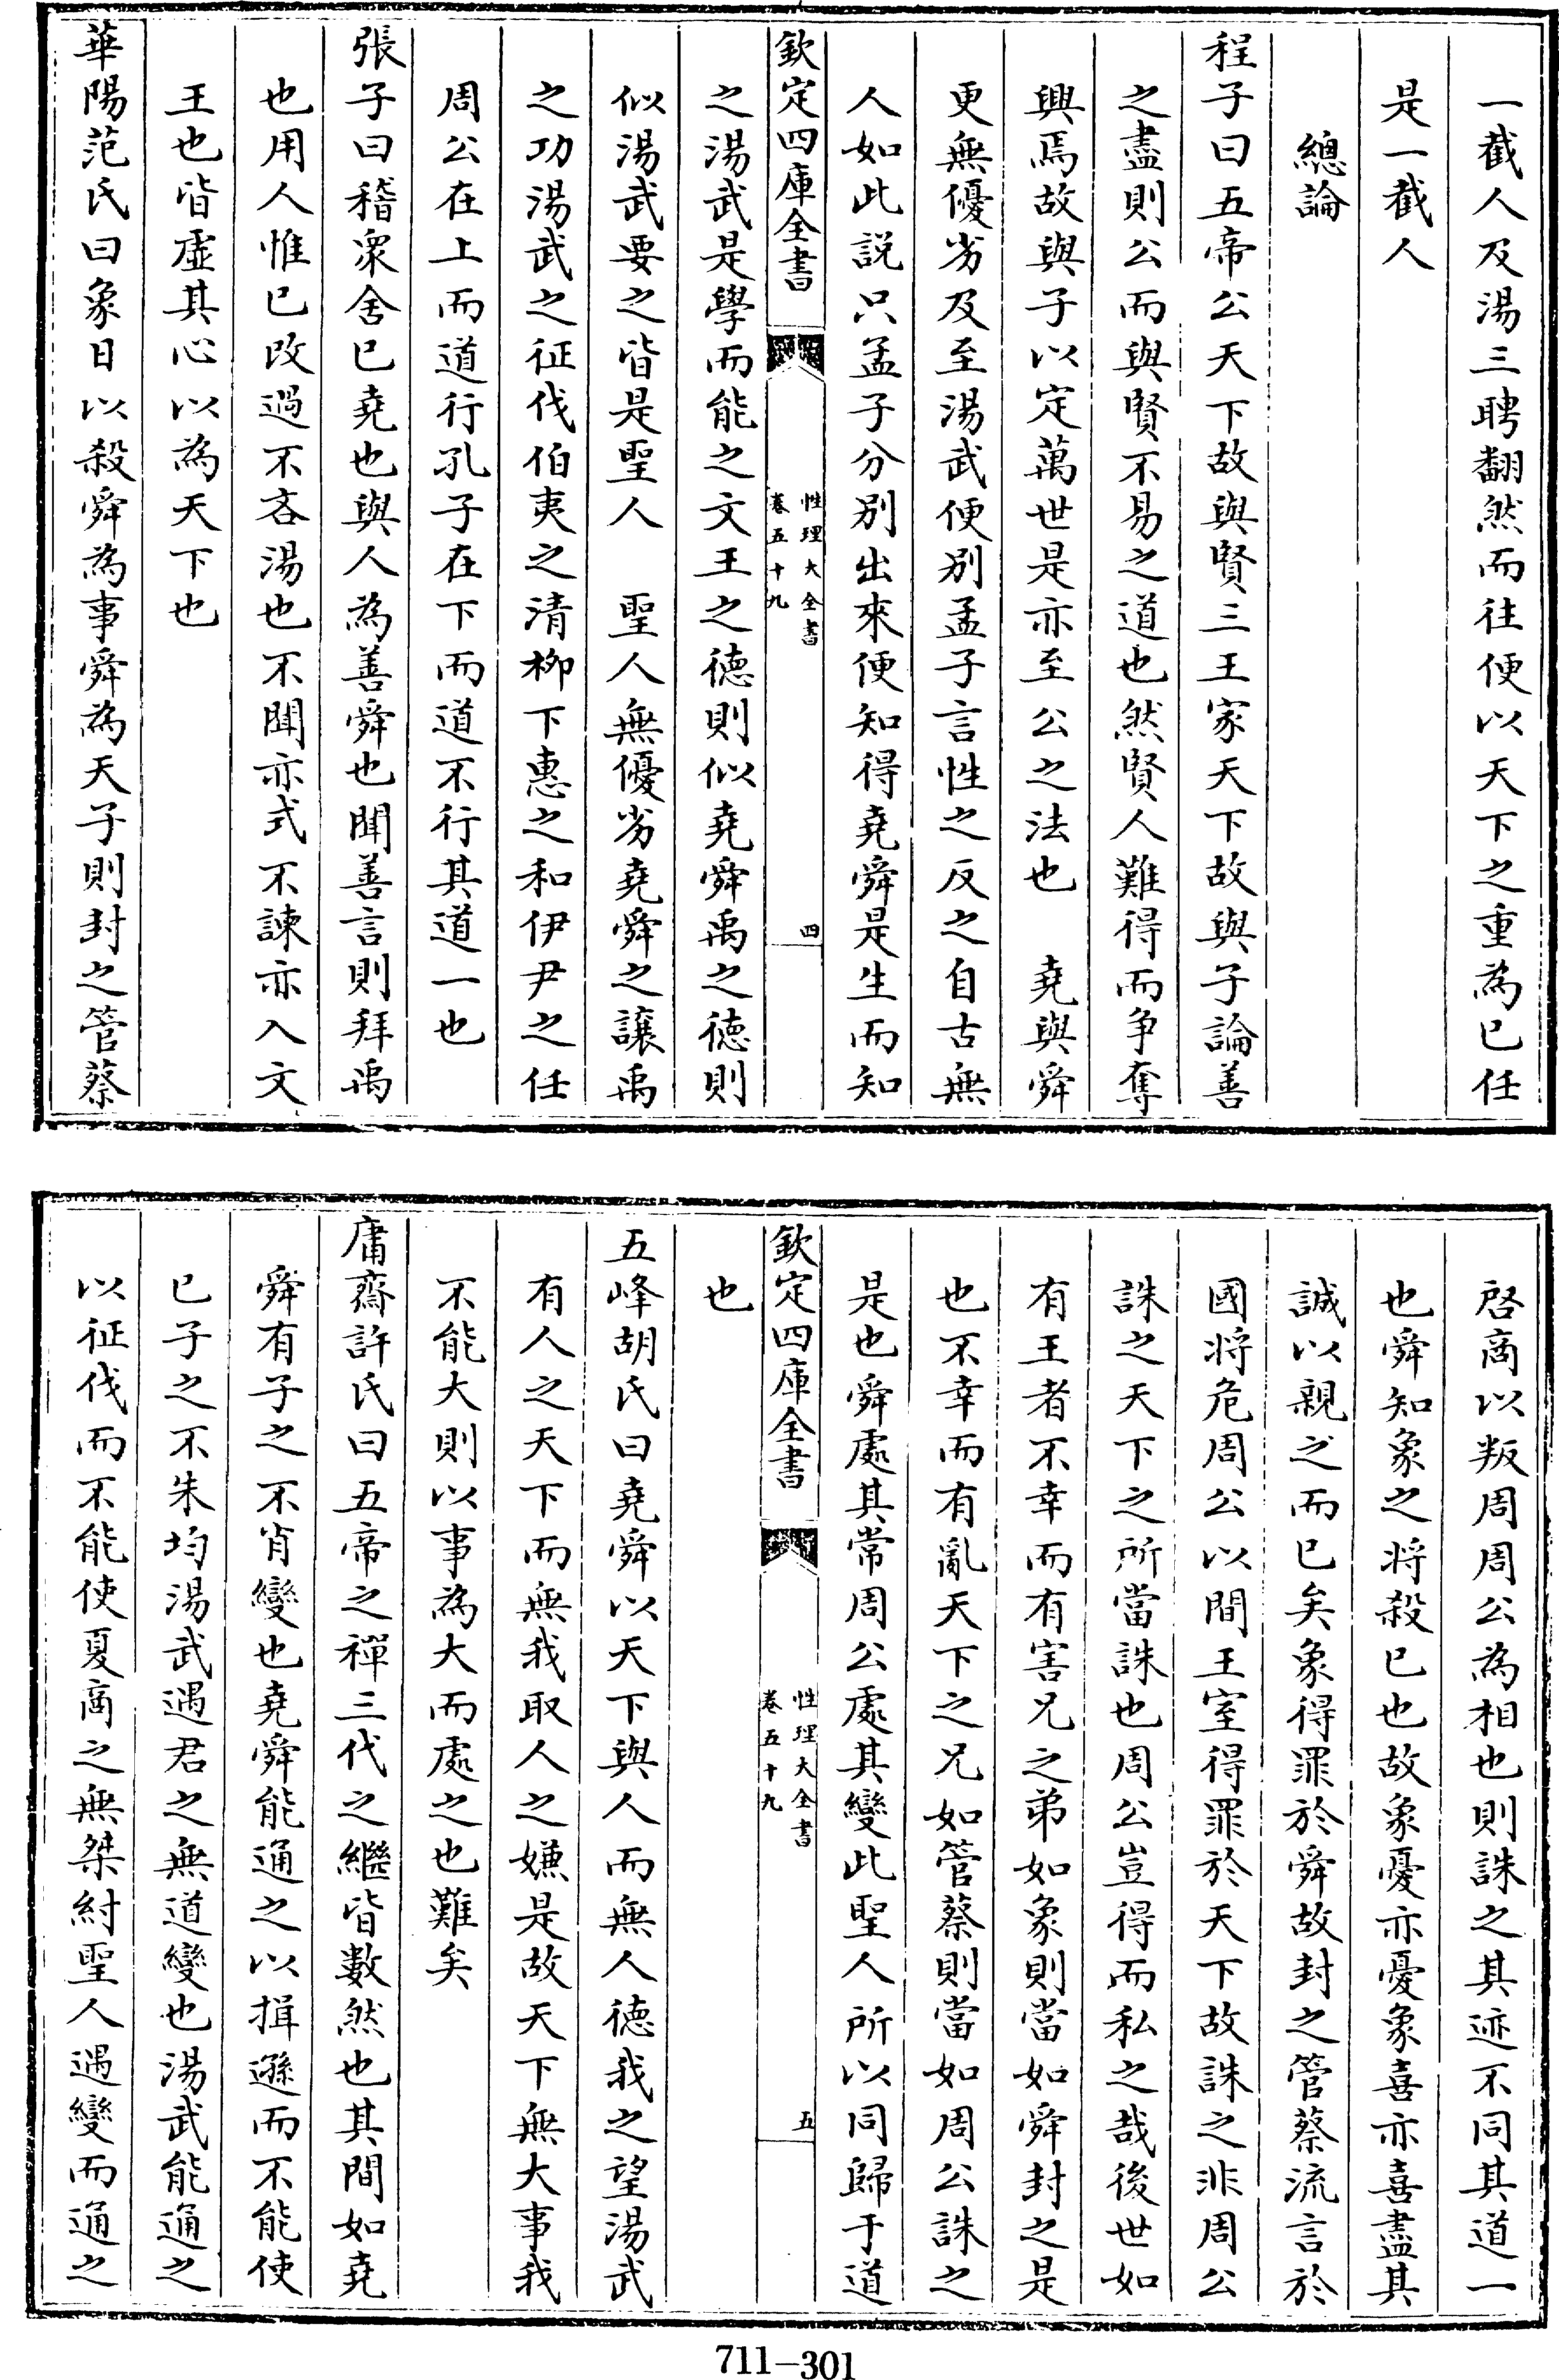 一截人及湯三聘翻然而往便以天下之重為已任
是一截人
總論
程子曰五帝公天下故與賢三王家天下故與子論善
之盡則公而與賢不易之道也然賢人難得而争奪
興焉故與子以定萬世是亦至公之法也　堯與舜
更無優劣及至湯武便别孟子言性之反之自古無
人如此説只孟子分别出來便知得堯舜是生而知
欽定四庫全書
性理大全書
卷五十九
四
之湯武是學而能之文王之德則似堯舜禹之德則
似湯武要之皆是聖人　聖人無優劣堯舜之讓禹
之功湯武之征伐伯夷之清柳下惠之和伊尹之任
周公在上而道行孔子在下而道不行其道一也
張子曰稽衆舍已堯也與人為善舜也聞善言則拜禹
也用人惟已改過不吝湯也不聞亦式不諫亦入文
王也皆虛其心以為天下也
華陽范氏曰象日以殺舜為事舜為天子則封之管蔡
啓商以叛周周公為相也則誅之其迹不同其道一
也舜知象之将殺已也故象憂亦憂象喜亦喜盡其
誠以親之而已矣象得罪於舜故封之管蔡流言於
國将危周公以間王室得罪於天下故誅之非周公
誅之天下之所當誅也周公豈得而私之哉後世如
有王者不幸而有害兄之弟如象則當如舜封之是
也不幸而有亂天下之兄如管蔡則當如周公誅之
是也舜處其常周公處其變此聖人所以同歸于道
欽定四庫全書
性理大全書
卷五十九
五
也
五峰胡氏曰堯舜以天下與人而無人德我之望湯武
有人之天下而無我取人之嫌是故天下無大事我
不能大則以事為大而處之也難矣
庸齋許氏曰五帝之禪三代之繼皆數然也其間如堯
舜有子之不肖變也堯舜能通之以揖遜而不能使
已子之不朱均湯武遇君之無道變也湯武能通之
以征伐而不能使夏商之無桀紂聖人遇變而通之
711-301